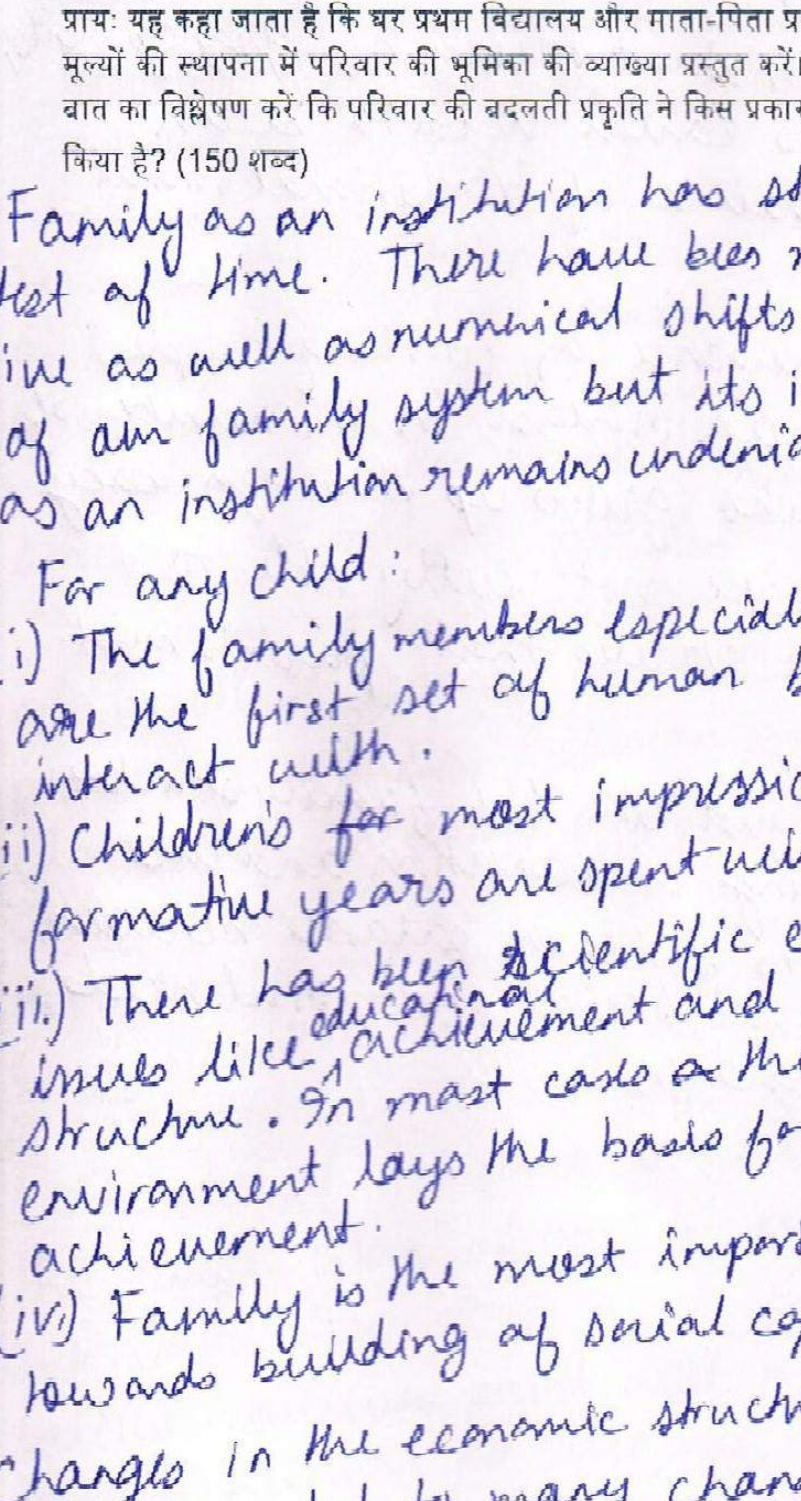 प्रायः यह कहा जाता है कि घर प्रथम विद्यालय और माता-पिता प्र
मूल्यों की स्थापना में परिवार की भूमिका की व्याख्या प्रस्तुत करें।
बात का विश्लेषण करें कि परिवार की बदलती प्रकृति ने किस प्रकार
किया है? (150 शब्द)
Family as an institution has st
test of time. There have been
ive as well as numerical shifts
of our family system but its i
as an institution remains undenia
For any child:
i) The family members especiall
are the first set of human b
interact with.
ii) Children's for most impressio
formative years are spent wi
iii.) There has been scientific e
educational
issues like achievement and
structure. In most cases the
environment lays the basis fo
achievement.
iv.) Family is the most impor
towards building of social ca
changes in the economic structu
many chan